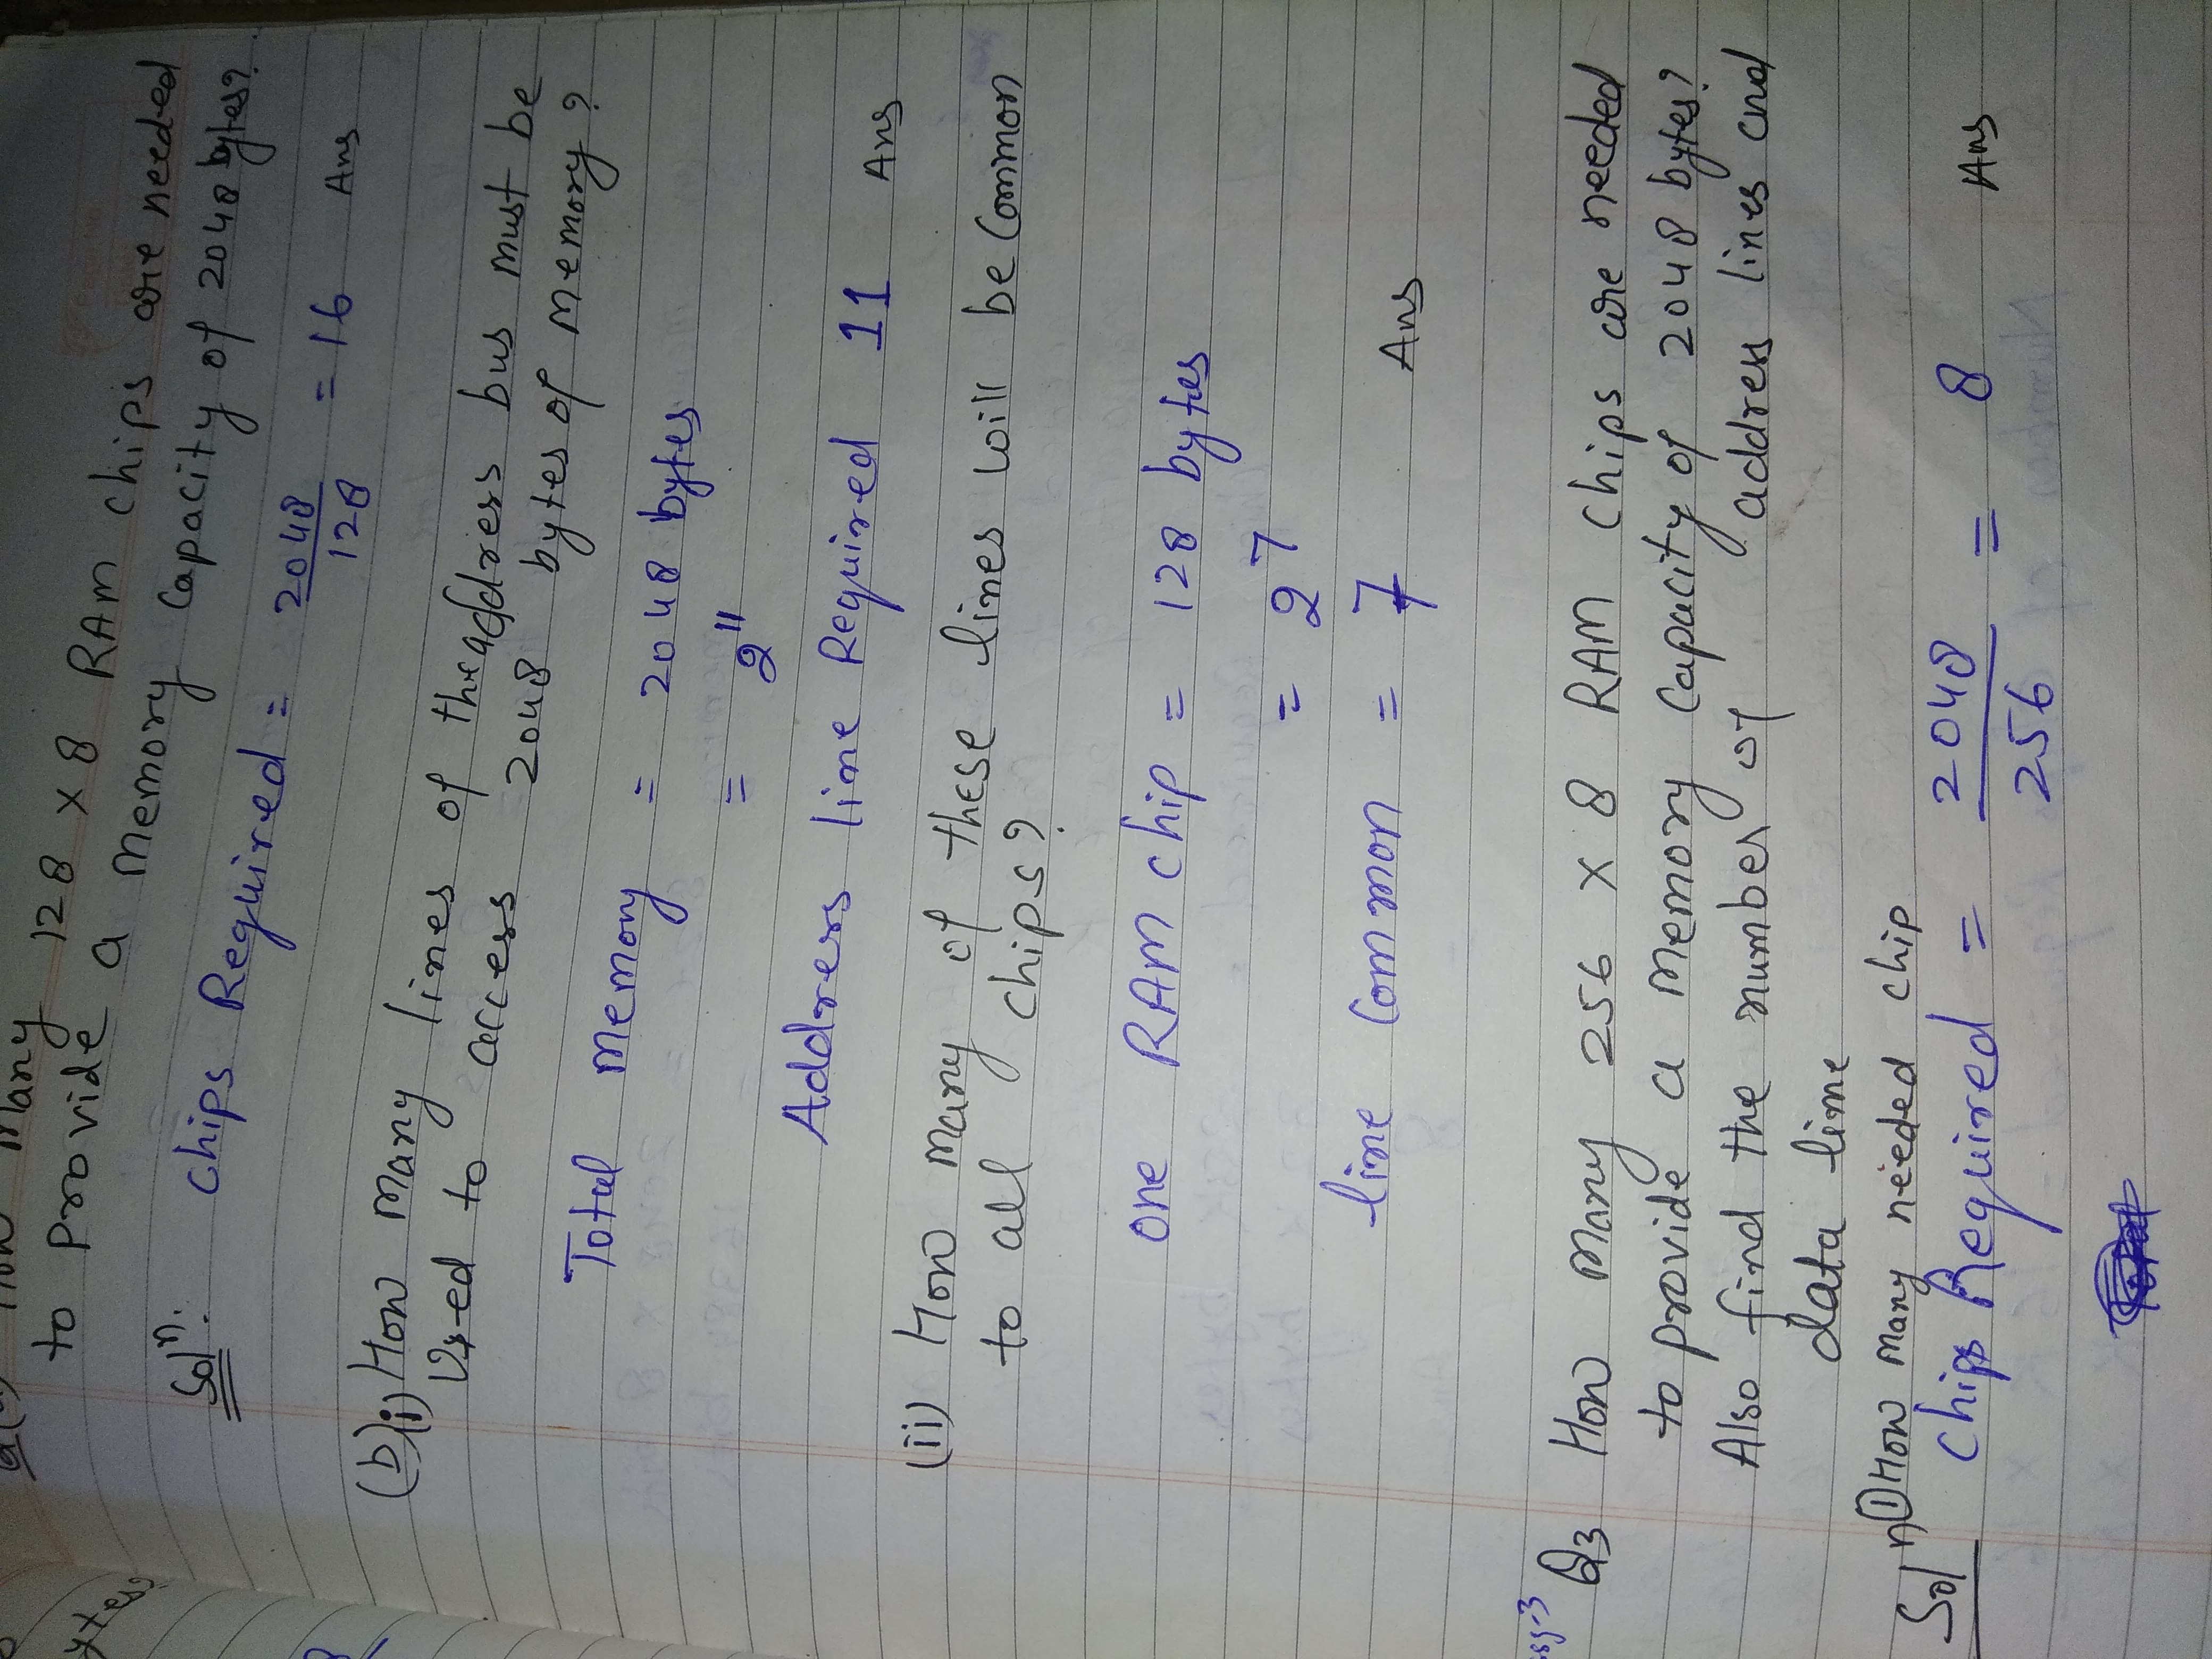 Many 128 x 8 RAM chips are needed
to provide a memory capacity of 2048 bytes?
Solⁿ. Chips Required = 2048/128 = 16 Ans
(b)(i) How many lines of the address bus must be
used to access 2048 bytes of memory?
Total memory = 2048 bytes
= 2¹¹
Address line Required 11 Ans
(ii) How many of these lines will be common
to all chips?
one RAM chip = 128 bytes
= 2⁷
line common = 7 Ans
Q3 How many 256 x 8 RAM chips are needed
to provide a memory capacity of 2048 bytes?
Also find the number of address lines and
data line
Solⁿ ① How many needed chip
Chips Required = 2048/256 = 8 Ans
ytes?